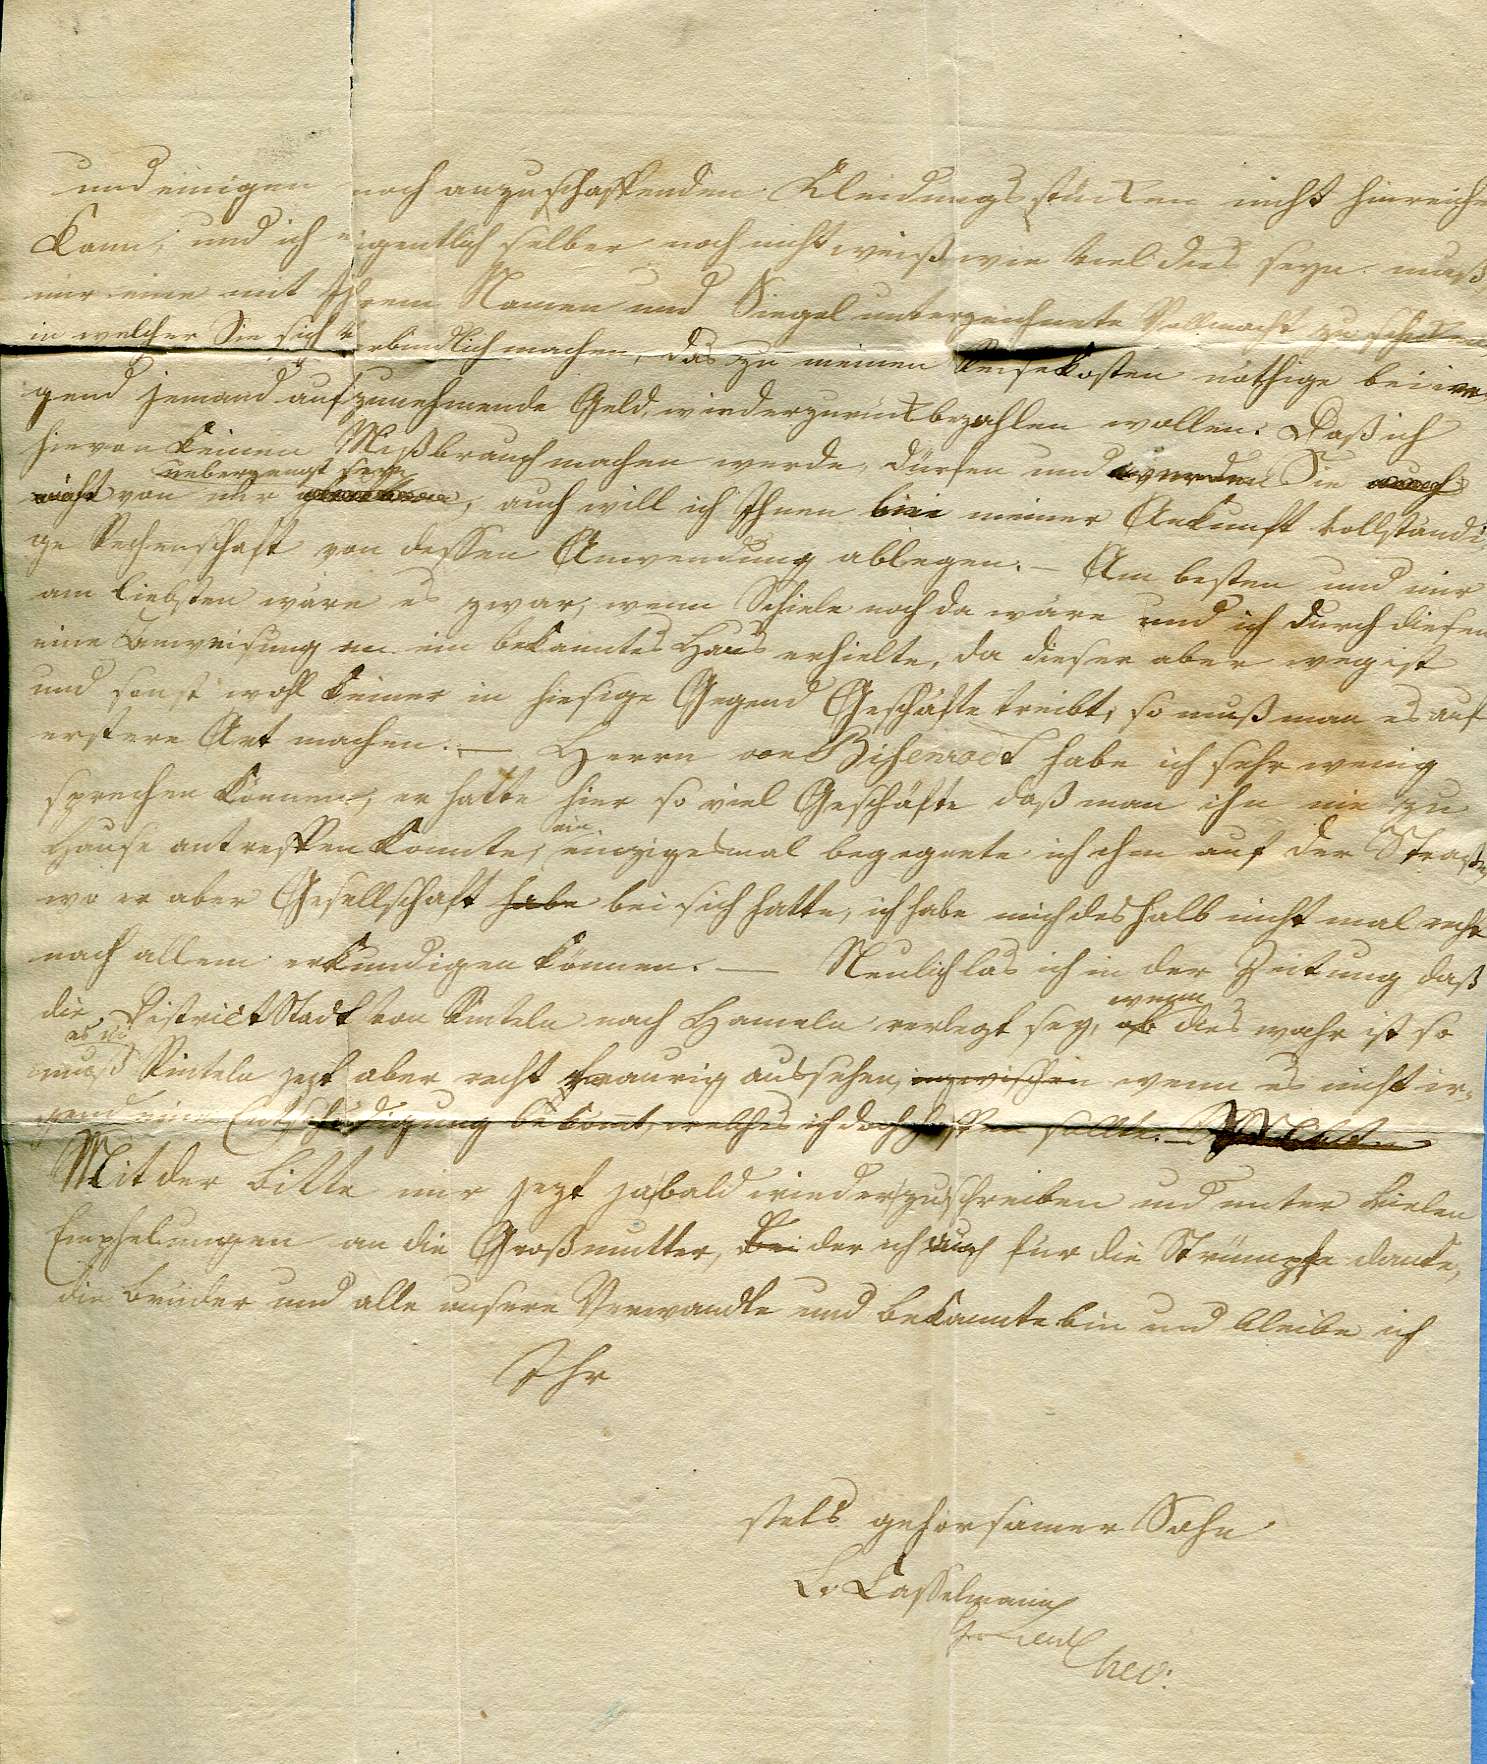 und einigen noch anzuschaffenden Kleidungsstücken nicht hinreichen
kann, und ich eigentlich selber noch nicht weiß wie viel dies seyn muß,
mir eine mit Ihrem Namen und Siegel unterzeichnete Vollmacht zu schicken
in welcher Sie sich verbindlich machen, das zu meinen Reisekosten nöthige bei ir
gend jemand aufzunehmende Geld, wiederzurückbezahlen wollen. Daß ich
hievon keinen Mißbrauch machen werde, dürfen und werden Sie
ueberzeugt seyn
von mir, auch will ich Ihnen bei meiner Ankunft vollständi
ge Rechenschaft von dessen Anwendung ablegen. – Am besten und mir
am liebsten wäre es zwar, wenn Schiele noch da wäre und ich durch diesen
eine Anweisung an ein bekanntes Haus erhielte, da dieser aber weg ist
und sonst wohl keiner in hiesige Gegend Geschäfte treibt, so muß man es auf
erstere Art machen. – Herrn von habe ich sehr wenig
sprechen können, er hatte hier so viel Geschäfte daß man ihn nie zu
ein
Hause antreffen konnte, einzigesmal begegnete ich ihm auf der Straße,
wo er aber Gesellschaft habe bei sich hatte, ich habe mich deshalb nicht mal recht
nach allem erkundigen können. – Neulich las ich in der Zeitung daß
wenn
die District Stadt von Rinteln nach Hameln verlegt sey, ob dies wahr ist so
muß Rinteln jezt aber recht traurig aussehen, inzwischen wenn es nicht ir-
gend eine Entschädigung bekomt, welches ich doch hoffen sollte. –
Mit der Bitte mir jezt ja bald wieder zu schreiben und unter vielen
Emphelungen an die Großmutter, Bei der ich auch für die Strümpfe danke,
die Brüder und alle unsere Verwandte und Bekannte bin und bleibe ich
Ihr
stets gehorsamer Sohn
L. Casselmann